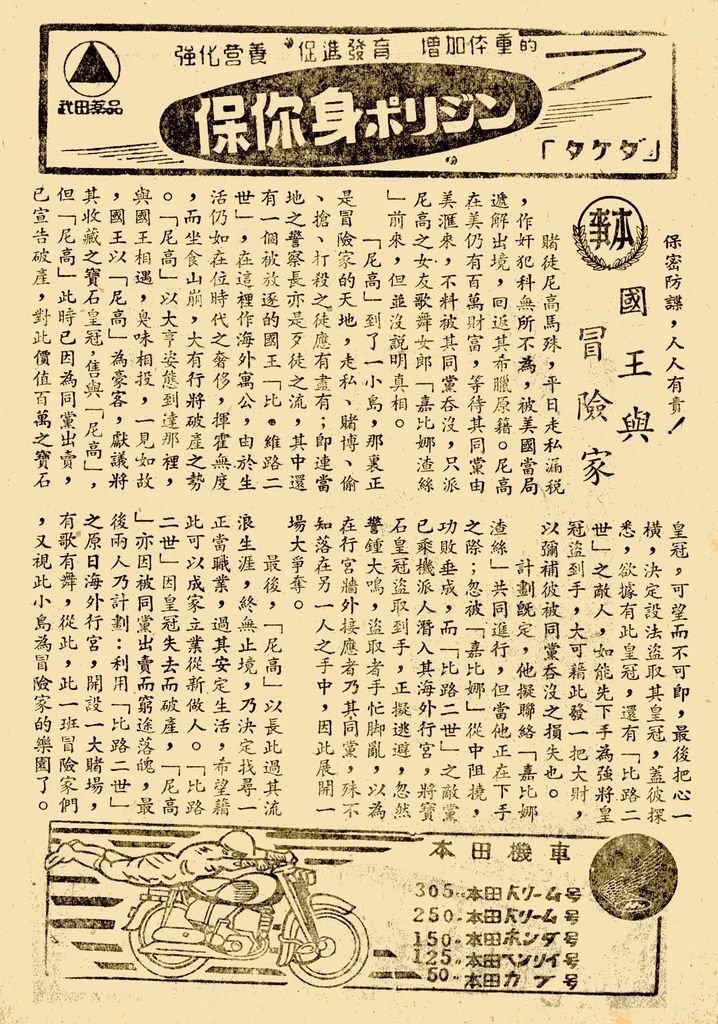 強化营養 促進發育 增加体重的
武田薬品
保你身ポリジン
「タケダ」
保密防諜，人人有責！
本事
國王與
冒險家
賭徒尼高馬殊，平日走私漏税
，作奸犯科無所不為，被美國當局
遞解出境，回返其希臘原籍。尼高
在美仍有百萬財富，等待其同黨由
美滙來，不料被其同黨吞沒，只派
尼高之女友歌舞女郎「嘉比娜渣絲
」前來，但並沒說明真相。
「尼高」到了一小島，那裏正
是冒險家的天地，走私、賭博、偷
、搶、打殺之徒應有盡有；即連當
地之警察長亦是歹徒之流，其中還
有一個被放逐的國王「比・維路二
世」，在這裡作海外寓公，由於生
活仍如在位時代之奢侈，揮霍無度
，而坐食山崩，大有行將破產之勢
。「尼高」以大亨姿態到達那裡，
與國王相遇，臭味相投，一見如故
，國王以「尼高」為豪客，獻議將
其收藏之寶石皇冠，售與「尼高」，
但「尼高」此時已因為同黨出賣，
已宣告破產，對此價值百萬之寶石
皇冠，可望而不可即，最後把心一
橫，決定設法盜取其皇冠，蓋彼探
悉，欲據有此皇冠，還有「比路二
世」之敵人，如能先下手為強將皇
冠盜到手，大可藉此發一把大財，
以彌補彼被同黨吞沒之損失也。
計劃既定，他擬聯絡「嘉比娜
渣絲」共同進行，但當他正在下手
之際；忽被「嘉比娜」從中阻撓，
功敗垂成，而「比路二世」之敵黨
已乘機派人潛入其海外行宮，將寶
石皇冠盜取到手，正擬逃避，忽然
警鐘大鳴，盜取者手忙脚亂，以為
在行宮牆外接應者乃其同黨，殊不
知落在另一人之手中，因此展開一
場大爭奪。
最後，「尼高」以長此過其流
浪生涯，終無止境，乃決定找尋一
正當職業，過其安定生活，希望藉
此可以成家立業從新做人。「比路
二世」因皇冠失去而破產，「尼高
」亦因被同黨出賣而窮途落魄，最
後兩人乃計劃：利用「比路二世」
之原日海外行宮，開設一大賭場，
有歌有舞，從此，此一班冒險家們
，又視此小島為冒險家的樂園了。
本田機車
305 本田ドリーム号
250 本田ドリーム号
150 本田ホンダ号
125 本田ベンリイ号
50 本田カブ号